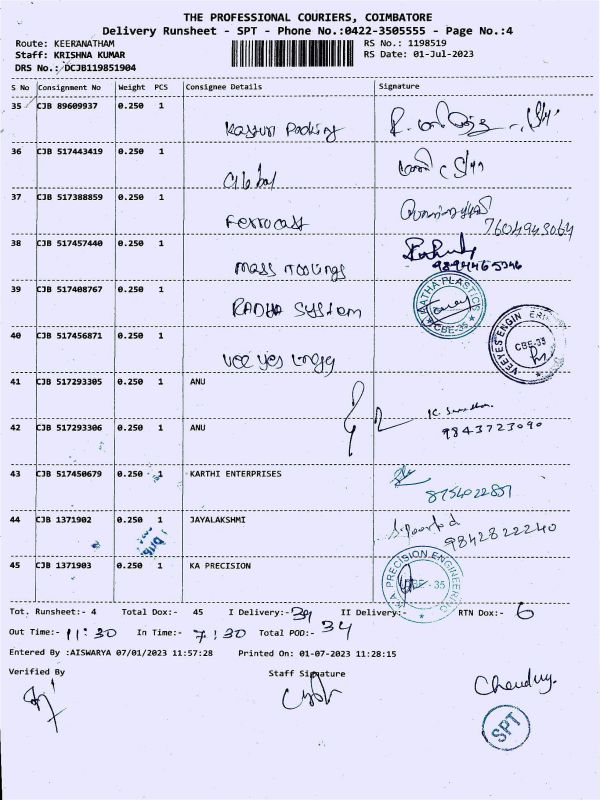 THE PROFESSIONAL COURIERS, COIMBATORE
Delivery Runsheet - SPT - Phone No.:0422-3505555 - Page No.:4
Route: KEERANATHAM
RS No.: 1198519
Staff: KRISHNA KUMAR
RS Date: 01-Jul-2023
DRS No.: DCJB119851904
S No Consignment No Weight PCS Consignee Details Signature
35 CJB 89609937 0.250 1
36 CJB 517443419 0.250 1
Global
37 CJB 517388859 0.250 1
Ferrocast
7604943064
38 CJB 517457440 0.250 1
mass toolings
39 CJB 517408767 0.250 1
RADHA SYSTEM
MATHA PLASTICS
CBE-35
40 CJB 517456871 0.250 1
Vee yes
VEEYES ENGIN
CBE-35
41 CJB 517293305 0.250 1 ANU
42 CJB 517293306 0.250 1 ANU
9843723090
43 CJB 517450679 0.250 1 KARTHI ENTERPRISES
8754022851
44 CJB 1371902 0.250 1 JAYALAKSHMI
9842822240
45 CJB 1371903 0.250 1 KA PRECISION
KA PRECISION ENGINEERING
CBE-35
Tot. Runsheet:- 4 Total Dox:- 45 I Delivery:- 39 II Delivery:- RTN Dox:- 6
Out Time:- 11:30 In Time:- 7:30 Total POD:- 34
Entered By :AISWARYA 07/01/2023 11:57:28 Printed On: 01-07-2023 11:28:15
Verified By Staff Signature
SPT